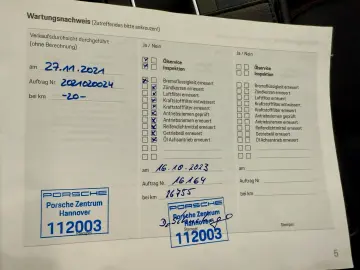 Wartungsnachweis (Zutreffendes bitte ankreuzen!)
Verkaufsdurchsicht durchgeführt
(ohne Berechnung)
am 27.11.2021
Auftrag Nr. 202102024
bei km -20-
PORSCHE
Porsche Zentrum
Hannover
112003
Ja / Nein
Ölservice
Inspektion
Bremsflüssigkeit erneuert
Zündkerzen erneuert
Luftfilter erneuert
Kraftstofffilter erneuert
Antriebsriemen geprüft
Antriebsriemen erneuert
Reifendichtmittel erneuert
Getriebeöl erneuert
Öl Achsantrieb erneuert
am 16.10.2023
Auftrag Nr. 16164
bei km 16755
PORSCHE
Porsche Zentrum
Hannover
112003
Ja / Nein
Ölservice
Inspektion
Bremsflüssigkeit erneuert
Zündkerzen erneuert
Luftfilter erneuert
Kraftstofffilter erneuert
Antriebsriemen geprüft
Antriebsriemen erneuert
Reifendichtmittel erneuert
Getriebeöl erneuert
Öl Achsantrieb erneuert
am
Auftrag Nr.
bei km
Stempel
5